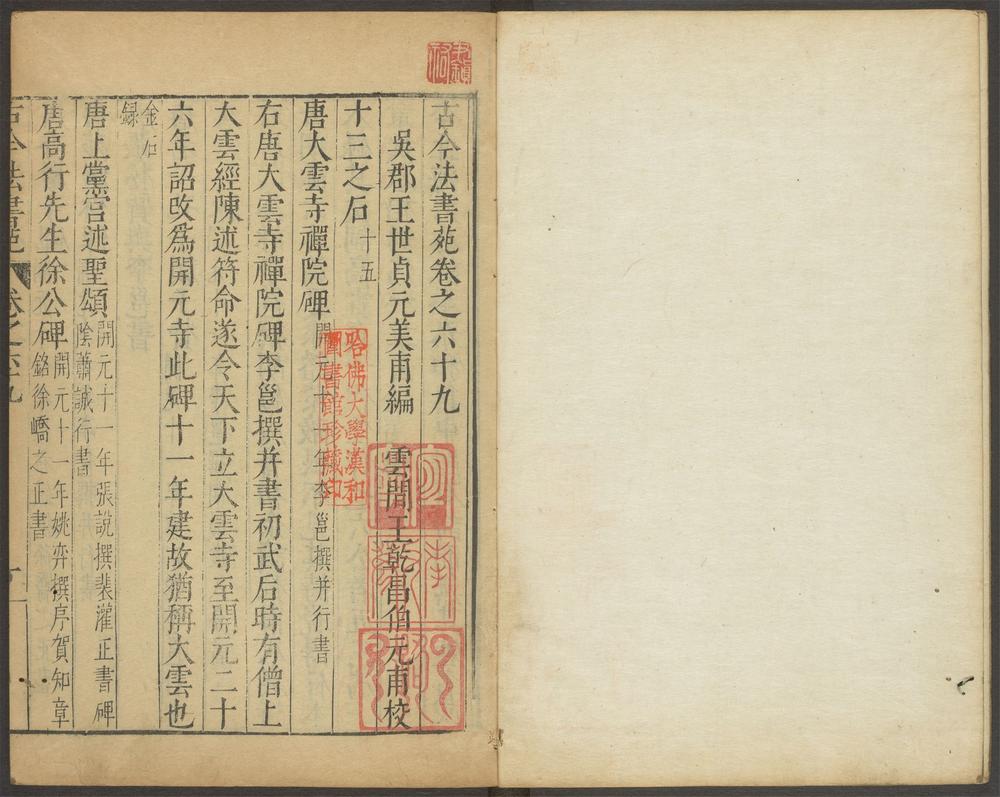 古今法書苑卷之六十九
吳郡王世貞元美甫編 雲間王乾昌伯元甫校
十三之石 十五
唐大雲寺禪院碑 開元十一年李邕撰并行書
右唐大雲寺禪院碑李邕撰并書初武后時有僧上
大雲經陳述符命遂令天下立大雲寺至開元二十
六年詔改爲開元寺此碑十一年建故猶稱大雲也
金石
録
唐上黨宮述聖頌 開元十一年張說撰裴漼正書碑
陰蕭誠行書
唐高行先生徐公碑 開元十一年姚弈撰序賀知章
銘徐嶠之正書
古今法書苑 卷之六十九
哈佛大學漢和
圖書館珍藏印